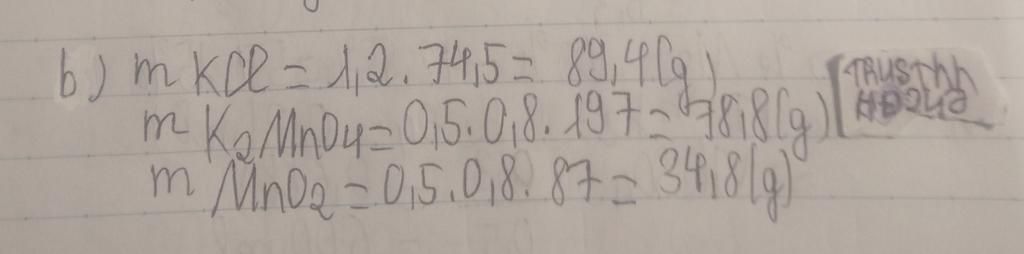 b) m KCl = 1,2 . 74,5 = 89,4(g)
m K2MnO4 = 0,5 . 0,8 . 197 = 78,8(g)
m MnO2 = 0,5 . 0,8 . 87 = 34,8(g)